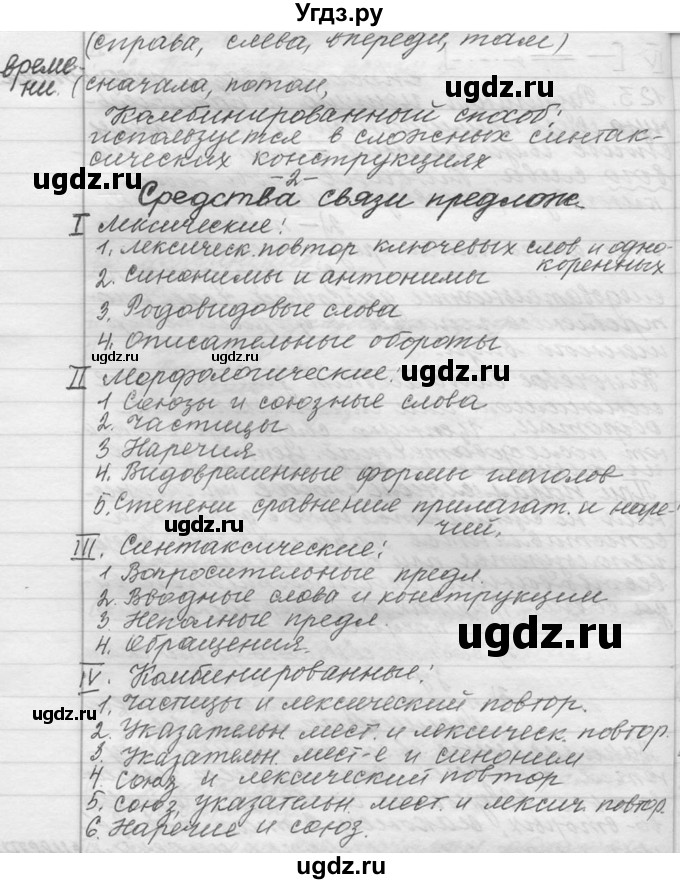 Угдз.ру
(справа, слева, впереди, там)
време-
ни. (сначала, потом,
Комбинированный способ:
используется в сложных синтак-
сических конструкциях
-2-
Средства связи предлож.
I Лексические:
1. Лексическ. повтор ключевых слов и одно-
коренных
2. Синонимы и антонимы
3. Родовидовые слова
4. Описательные обороты
II Морфологические:
1 Союзы и союзные слова
2. Частицы
3 Наречия
4. Видовременные формы глаголов
5. Степени сравнения прилагат. и наре-
чий.
III. Синтаксические:
1 Вопросительные предл.
2. Вводные слова и конструкции
3 Неполные предл.
4. Обращения.
IV. Комбинированные:
1. Частицы и лексический повтор.
2. Указательн мест. и лексическ. повтор.
3. Указательн. мест-е и синоним
4. Союз и лексический повтор
5. Союз, указательн. мест. и лексич. повтор.
6. Наречие и союз.
ugdz.ru
ugdz.ru
ugdz.ru
ugdz.ru
ugdz.ru
ugdz.ru
ugdz.ru
ugdz.ru
ugdz.ru
ugdz.ru
ugdz.ru
ugdz.ru
ugdz.ru
ugdz.ru